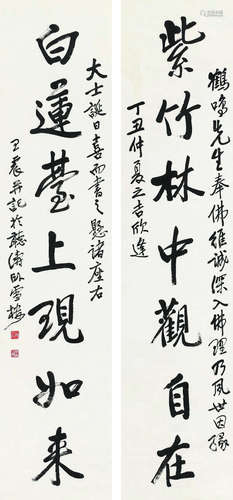 鶴鳴先生奉佛維誠深入佛理乃夙世因緣
紫竹林中觀自在
丁丑仲夏之吉欣逢
大士誕日喜而書之懸諸座右
白蓮臺上現如来
王震并記於聽濤臥雪樓